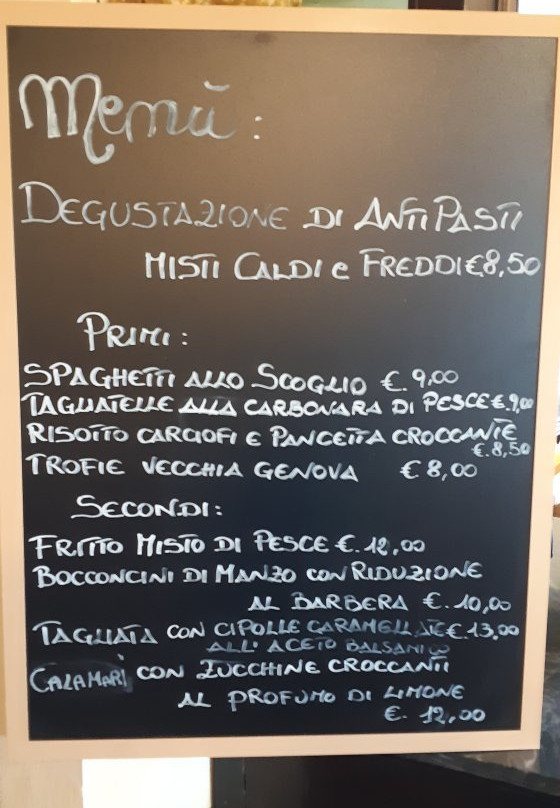 Menù:
DEGUSTAZIONE DI ANTIPASTI
MISTI CALDI e FREDDI €8,50
PRIMI:
SPAGHETTI ALLO SCOGLIO €.9,00
TAGLIATELLE ALLA CARBONARA DI PESCE €.9,00
RISOTTO CARCIOFI E PANCETTA CROCCANTE
€.8,50
TROFIE VECCHIA GENOVA €8,00
SECONDI:
FRITTO MISTO DI PESCE €.12,00
BOCCONCINI DI MANZO CON RIDUZIONE
AL BARBERA €.10,00
TAGLIATA CON CIPOLLE CARAMELLATE €13,00
ALL'ACETO BALSAMICO
CALAMARI CON ZUCCHINE CROCCANTI
AL PROFUMO DI LIMONE
€.12,00